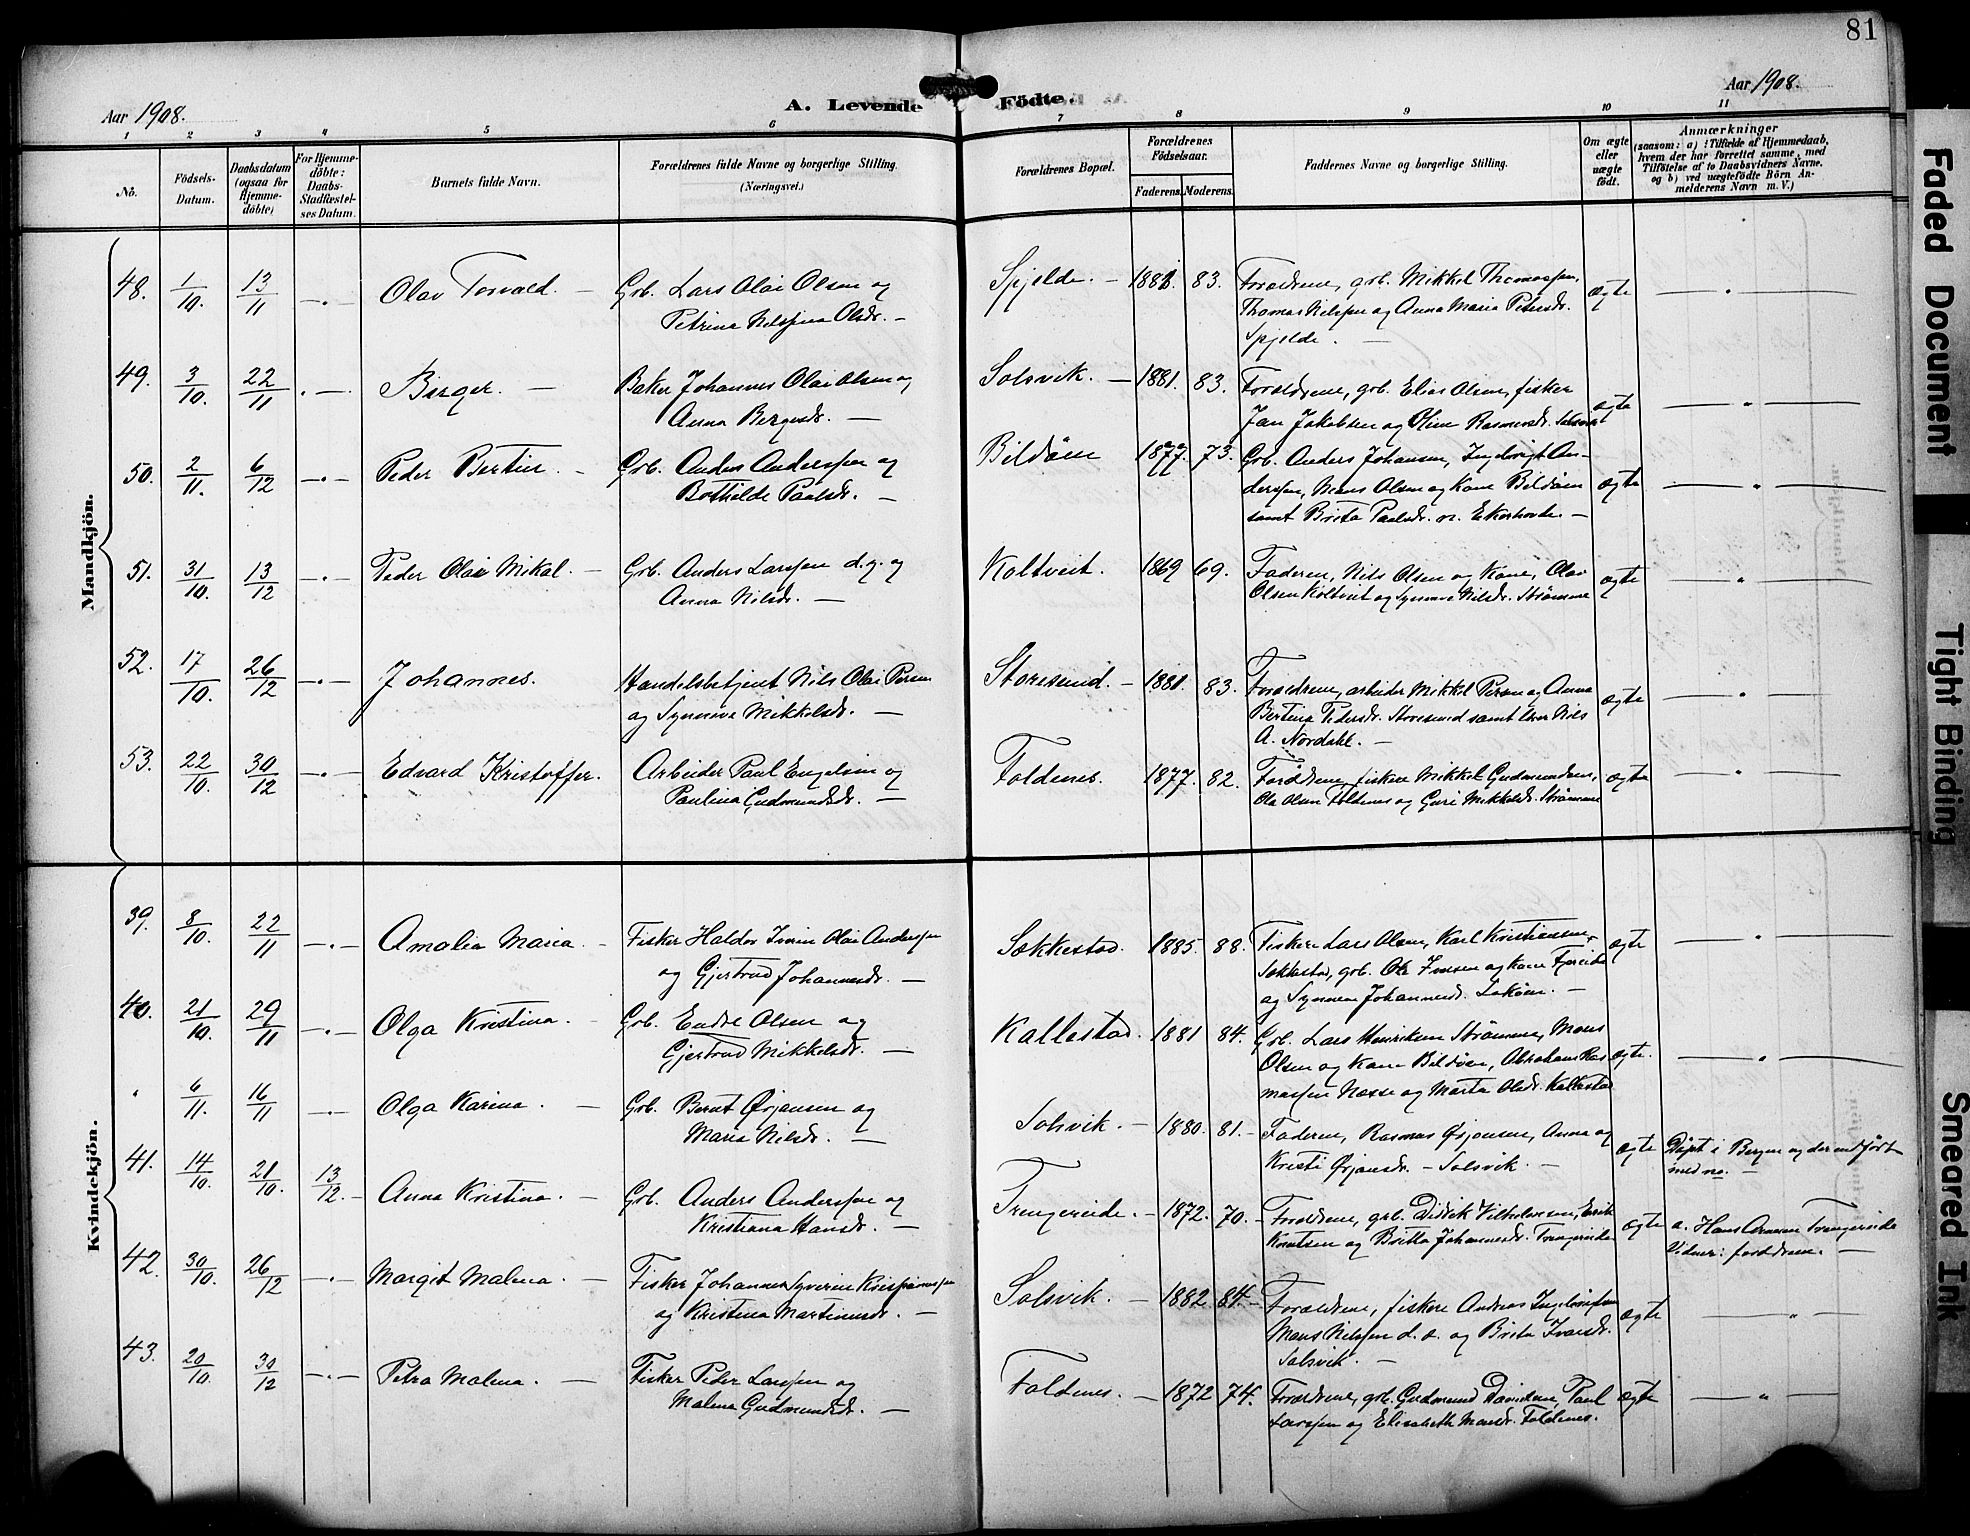 81
Aar 1908.
A. Levende Födte.
Aar 1908.
1 2 3 4 5 6 7 8 9 10 11
No.
Födsels-
Datum.
Daabsdatum
(ogsaa for
Hjemme-
döbte)
For Hjemme-
döbte:
Daabs-
Stadfæstel-
ses Datum.
Barnets fulde Navn.
Forældrenes fulde Navne og borgerlige Stilling.
(Næringsvei.)
Forældrenes Bopæl.
Forældrenes
Födselsaar.
Faderens. Moderens.
Faddernes Navne og borgerlige Stilling.
Om ægte
eller
uægte
födt.
Anmærkninger
(saasom: a) i Tilfælde af Hjemmedaab,
hvem der har forrettet samme, med
Tilföielse af to Daabsvidners Navne,
og b) ved uægtefödte Börn An-
melderens Navn m. V.)
Mandkjön.
48. 1/10. 13/11 —"— Olav Torvald. — Grb. Lars Olai Olsen og
Petrina Nilsina Olsdr. —
Spjelde. — 1881. 83. Forældrene, grb. Mikkel Thomassen,
Thomas Nilssen og Anna Maria Petersdr.
Spjelde. — ægte — " —
49. 3/10. 22/11 "— Birger. — Baker Johannes Olai Olsen og
Anna Bergesdr. —
Solsvik. — 1881. 83. Forældrene, grb. Elias Olsen, fisker
Jan Jakobsen og Oline Rasmusdr. Solsvik ægte — " —
50. 2/11. 6/12 —"— Peder Bertin. — Grb. Anders Anderssen og
Bothilde Paalsdr. —
Bildöen 1877. 73. Grb. Anders Johansen, Ingebrigt An-
derssen, Mons Olsen og Kone Bildöen
samt Brita Paalsdr. n. Ekerhovde. — ægte — " —
51. 31/10. 13/12 —"— Peder Olai Mikal. — Grb. Anders Larssen d.y. og
Anna Nilsdr. —
Koltveit. 1869 69. Faderen, Nils Olsen og Kone, Olav
Olsen Koltveit og Synneve Nilsdr. Strömme ægte — " —
52. 17/10. 26/12 —"— Johannes. Handelsbetjent Nils Olai Persen
og Synneva Mikkelsdr. —
Storesund. — 1881. 83. Forældrene, arbeider Mikkel Persen og Anna
Bertina Pedersdr. Storesund samt lærer Nils
A. Nordahl. — ægte — " —
53. 22/10. 30/12 —"— Edvard Kristoffer. Arbeider Paul Engelsen og
Paulina Gudmundsdr. —
Foldenes. 1877. 82. Forældrene, fiskere Mikkel Gudmundsen,
Ole Olsen Foldenes og Guri Mikkelsdr. Strömme ægte — " —
Kvindekjön.
39. 8/10. 22/11 —"— Amalia Maria. — Fisker Haldor Iverin Olai Anderssen
og Gjertrud Johannesdr. —
Sekkestad. 1885. 88. Fiskere Lars Olsen, Karl Kristiansen,
Sekkestad, grb. Ole Iversen og Kone Fjereide
og Synneva Johannesdr. — ægte — " —
40. 21/10. 29/11 —"— Olga Kristina. — Grb. Endre Olsen og
Gjertrud Mikkelsdr. —
Kallestad. 1881 84. Grb. Lars Henriksen Strömme, Mons
Olsen og Kone Bildöen, Abraham Ras
mussen Næsse og Marta Olsdr. Kallestad ægte. — " —
" 6/11. 16/11 —"— Olga Karina. — Grb. Bernt Ørjansen og
Maria Nilsdr. —
Solsvik. — 1880. 81. — Faderen, Rasmus Ørjansen, Anna og
Kristi Ørjansdr. — Solsvik. — ægte Døpt i Bergen og der indført
med no. —
41. 14/10. 21/10. 13/12. — Anna Kristina. — Grb. Anders Anderssen og
Kristiana Hansdr. —
Trengereide. — 1872. 70. — Forældrene, grb. Didrik Vilhelmsen, Erik
Knutsen og Britta Johannesdr. Trengereide ægte a. Hans Arnesen Trengereide
Vidner: forældrene. —
42. 30/10. 26/12 —"— Margit Malena. — Fisker Johannes Syverin Krispinussen
og Kristina Martinusdr. —
Solsvik. — 1882. 84. — Forældrene, fiskere Andreas Ingebrigtsen
Mons Nilssen d. e. og Brita Iversdr.
Solsvik. — ægte — " —
43. 20/10. 30/12 —"— Petra Malena. — Fisker Peder Larssen og
Malena Gudmundsdr. —
Foldenes. — 1872 74. Forældrene, grb. Gudmund Davidsen, Paul
Larssen og Elisabeth Monsdr. Foldenes. ægte — " —
Faded Document
Tight Binding
Smeared Ink